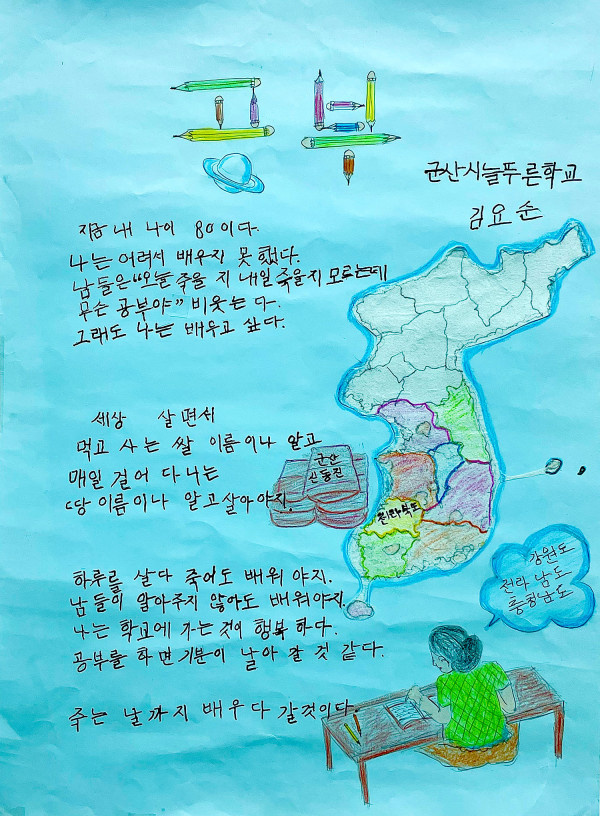 공부
군산시늘푸른학교
김요순
지금 내 나이 80이다.
나는 어려서 배우지 못 했다.
남들은 "오늘 죽을 지 내일 죽을지 모르는데
무슨 공부야" 비웃는 다.
그래도 나는 배우고 싶다.
세상 살면서
먹고 사는 쌀 이름이나 알고
매일 걸어 다니는
땅 이름이나 알고살아야지.
군산
신동진
전라북도
하루를 살다 죽어도 배워 야지.
남들이 알아주지 않아도 배워야지.
나는 학교에 가는 것이 행복 하다.
공부를 하면 기분이 날아 갈 것 같다.
강원도
전라 남도
충청남도
주는 날까지 배우다 갈것이다.